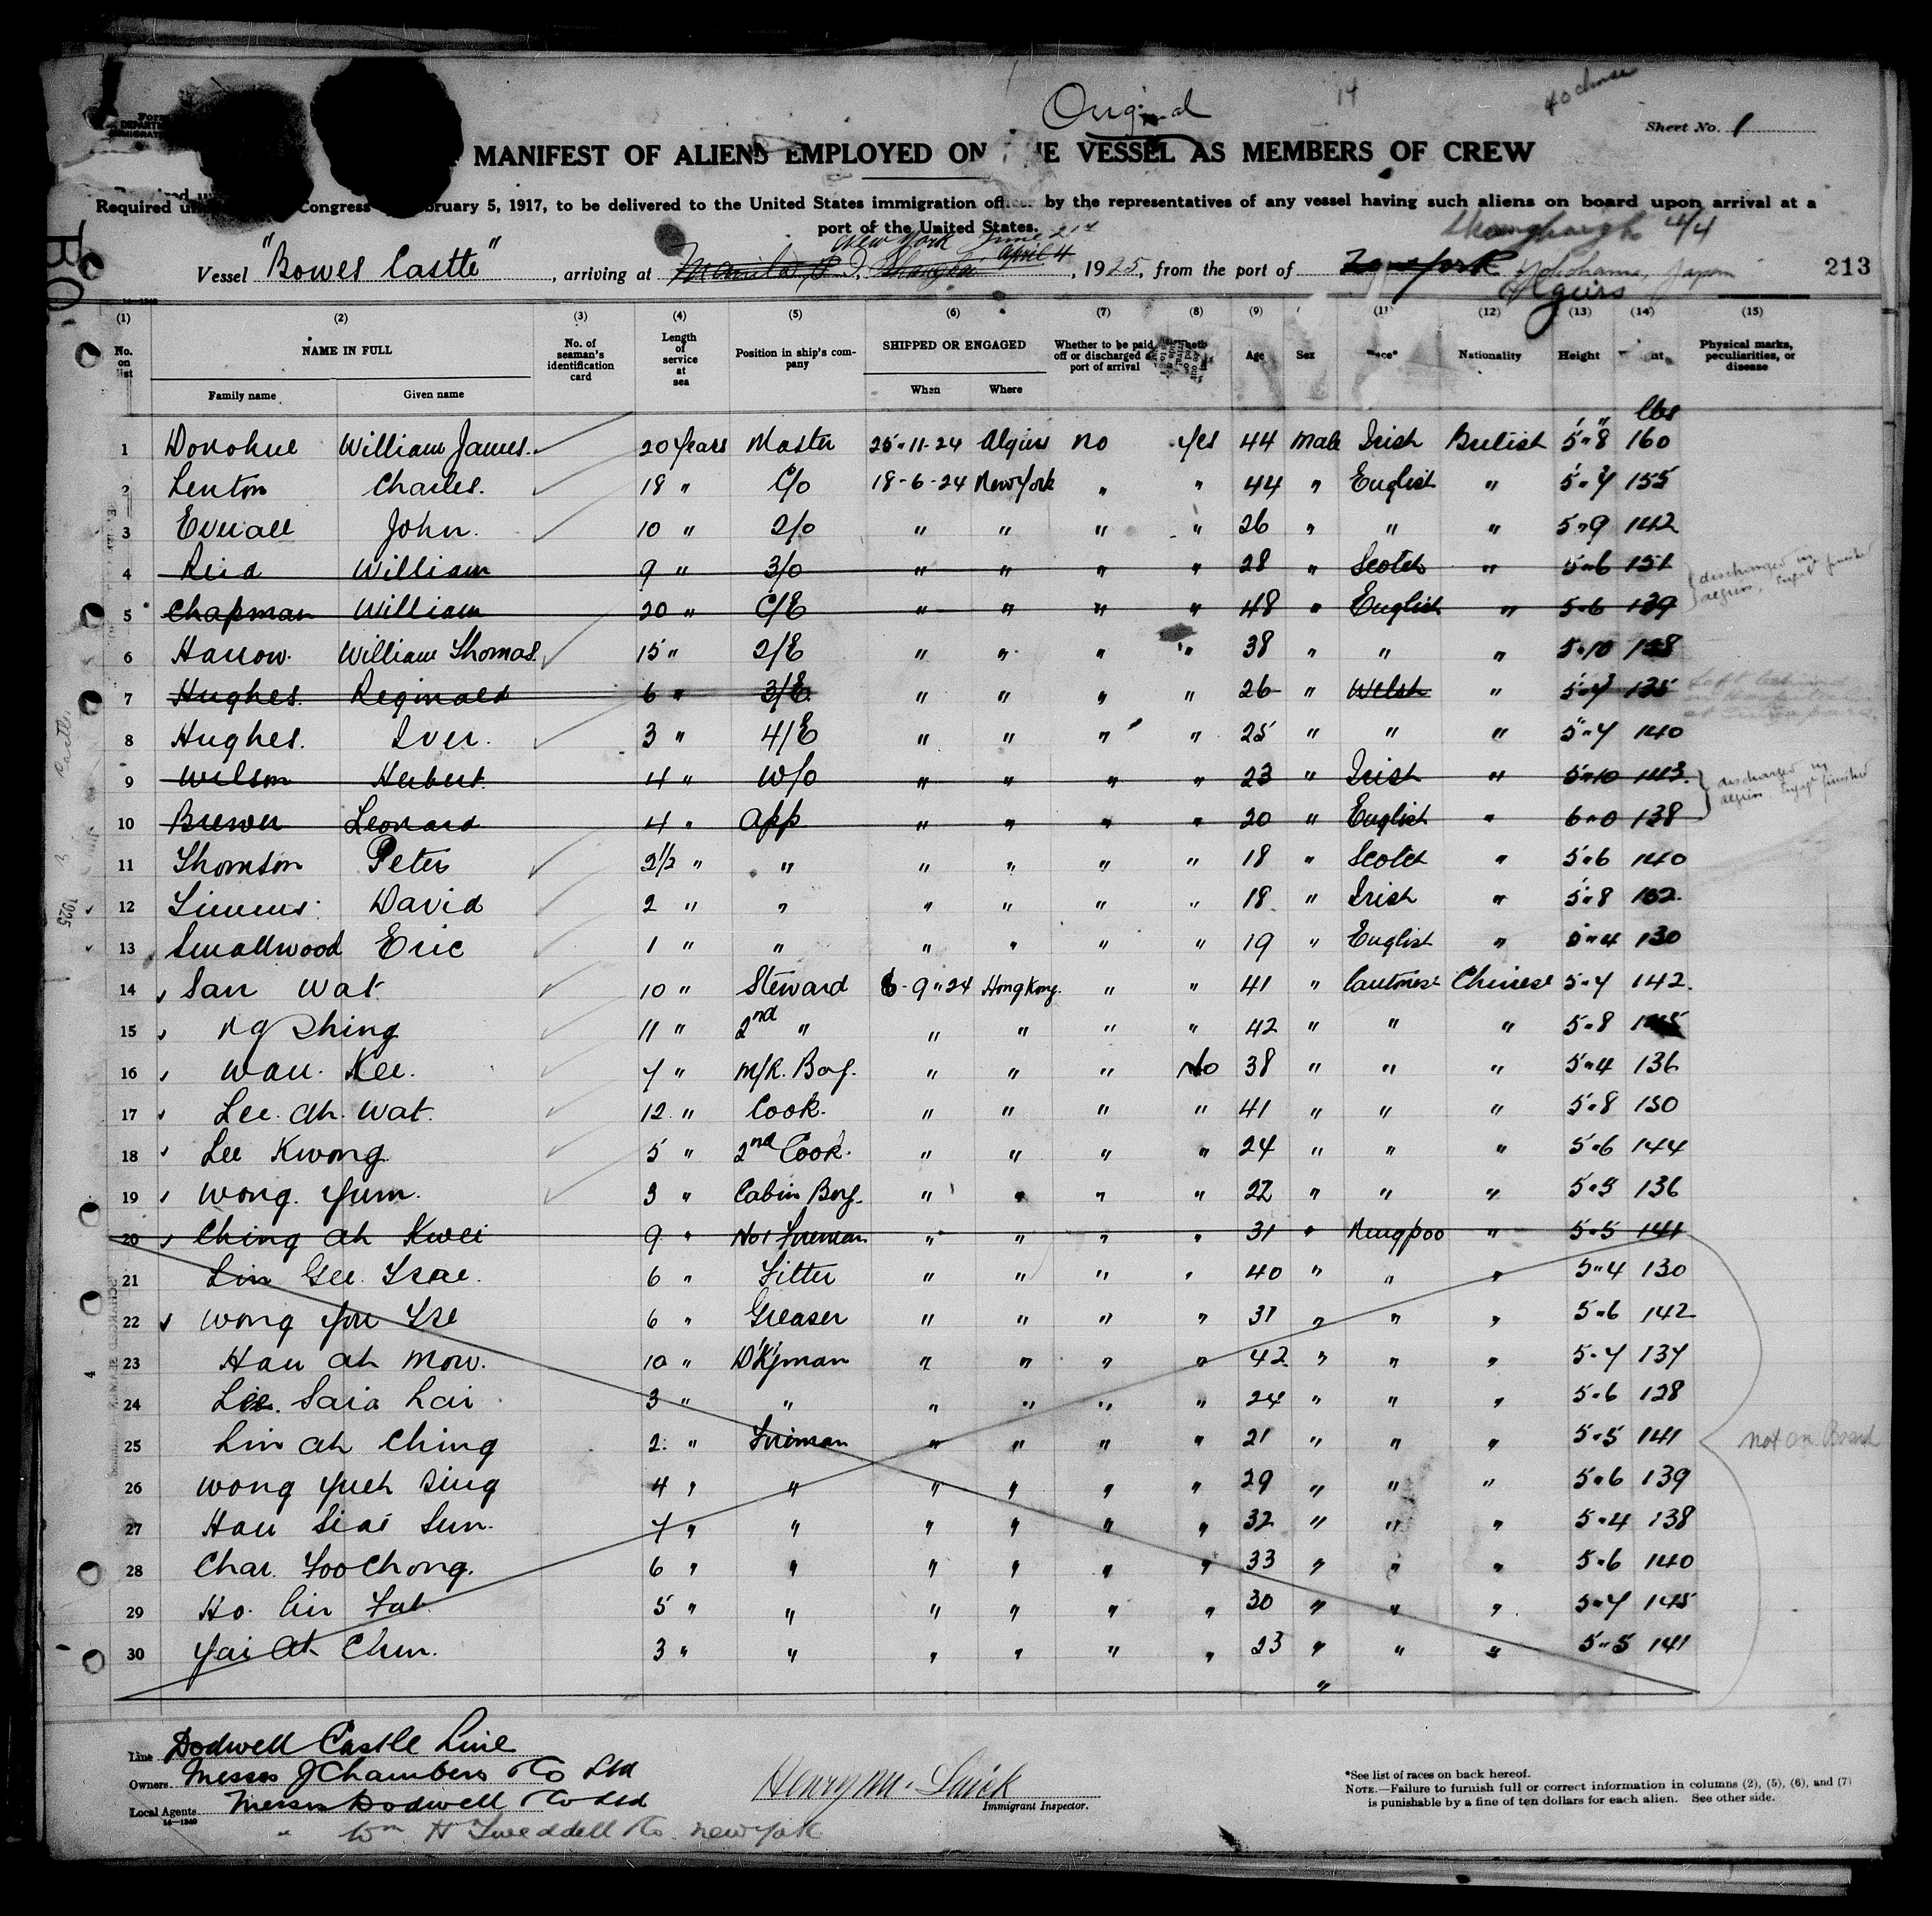 Original
14
Sheet No. 1
MANIFEST OF ALIENS EMPLOYED ON THE VESSEL AS MEMBERS OF CREW
Required under Congress February 5, 1917, to be delivered to the United States immigration officer by the representatives of any vessel having such aliens on board upon arrival at a
port of the United States.
New York June 21st
Vessel "Bowes Castle", arriving at Manila P.I., Shanghai April 4, 1925, from the port of New York Yokohama, Japan
Algiers
213
(1) (2) (3) (4) (5) (6) (7) (8) (9) (12) (13) (14) (15)
No. on list NAME IN FULL No. of seaman's identification card Length of service at sea Position in ship's company SHIPPED OR ENGAGED Whether to be paid off or discharged at port of arrival Age Sex Race* Nationality Height Physical marks, peculiarities, or disease
Family name Given name When Where
lbs
1 Donohue William James. 20 Years Master 25-11-24 Algiers no Yes 44 Male Irish British 5"8 160
2 Lenton Charles. 18 " C/o 18-6-24 New York " " 44 " English " 5"7 155
3 Everall John. 10 " 2/o " " " " 26 " " " 5"9 142
4 Reid William 9 " 3/o " " " " 28 " Scotch " 5"6 151
5 Chapman William 20 " C/E " " " " 48 " English " 5"6 139
discharged in Algiers, Engagt finished
6 Harrow. William Thomas. 15 " 2/E " " " " 38 " " " 5"10 158
7 Hughes. Reginald 6 " 3/E " " " " 26 " Welsh " 5"7 135
Left behind
8 Hughes. Iver. 3 " 4/E " " " " 25 " " " 5"7 140
9 Wilson Herbert. 4 " W/o " " " " 23 " Irish " 5"10 143.
10 Brewer Leonard 4 " App " " " " 20 " English " 6"0 138
discharged in Algiers Engagt finished
11 Thomson Peter 2½ " " " " " " 18 " Scotch " 5"6 140
12 Simms David 2 " " " " " " 18 " Irish " 5"8 152.
13 Smallwood Eric 1 " " " " " " 19 " English " 5"4 130
14 San Wat 10 " Steward 6-9"24 Hong Kong. " " 41 " Cantonese Chinese 5"7 142.
15 Ng Shing 11 " 2nd " " " " " 42 " " " 5"8
16 Wan. Kee. 7 " M/R. Boy. " " " No 38 " " " 5"4 136
17 Lee. Ah. Wat. 12 " Cook. " " " " 41 " " " 5"8 150
18 Lee Kwong 5 " 2nd Cook. " " " " 24 " " " 5"6 144
19 Wong. Yum. 3 " Cabin Boy. " " " " 22 " " " 5"5 136
20 Ching Ah Kwei 9 " No1 Fireman " " " " 31 " Ningpoo " 5"5 141
21 Lin Gee Tsae. 6 " Fitter " " " " 40 " " " 5"4 130
22 Wong You Tse 6 " Greaser " " " " 31 " " " 5"6 142
23 Hau Ah Mow. 10 " D'K'yman " " " " 42 " " " 5"7 137
24 Lee. Saia Lai 3 " " " " " " 24 " " " 5"6 128
25 Lin Ah Ching 2 " Fireman " " " " 21 " " " 5"5 141
not on Board
26 Wong Yueh Sing 4 " " " " " " 29 " " " 5"6 139
27 Hau Siai Sun. 7 " " " " " " 32 " " " 5"4 138
28 Char. Foo Chong. 6 " " " " " " 33 " " " 5"6 140
29 Ho. Cin Fat 5 " " " " " " 30 " " " 5"7 145
30 Yai Ah Chun. 3 " " " " " " 23 " " " 5"5 141
"
Line Dodwell Castle Line
Owners Messrs J Chambers & Co Ltd
Local Agents Messrs Dodwell & Co Ltd
14—1240
" Wm H Tweddell & Co. New York
Immigrant Inspector.
*See list of races on back hereof.
NOTE.—Failure to furnish full or correct information in columns (2), (5), (6), and (7)
is punishable by a fine of ten dollars for each alien. See other side.